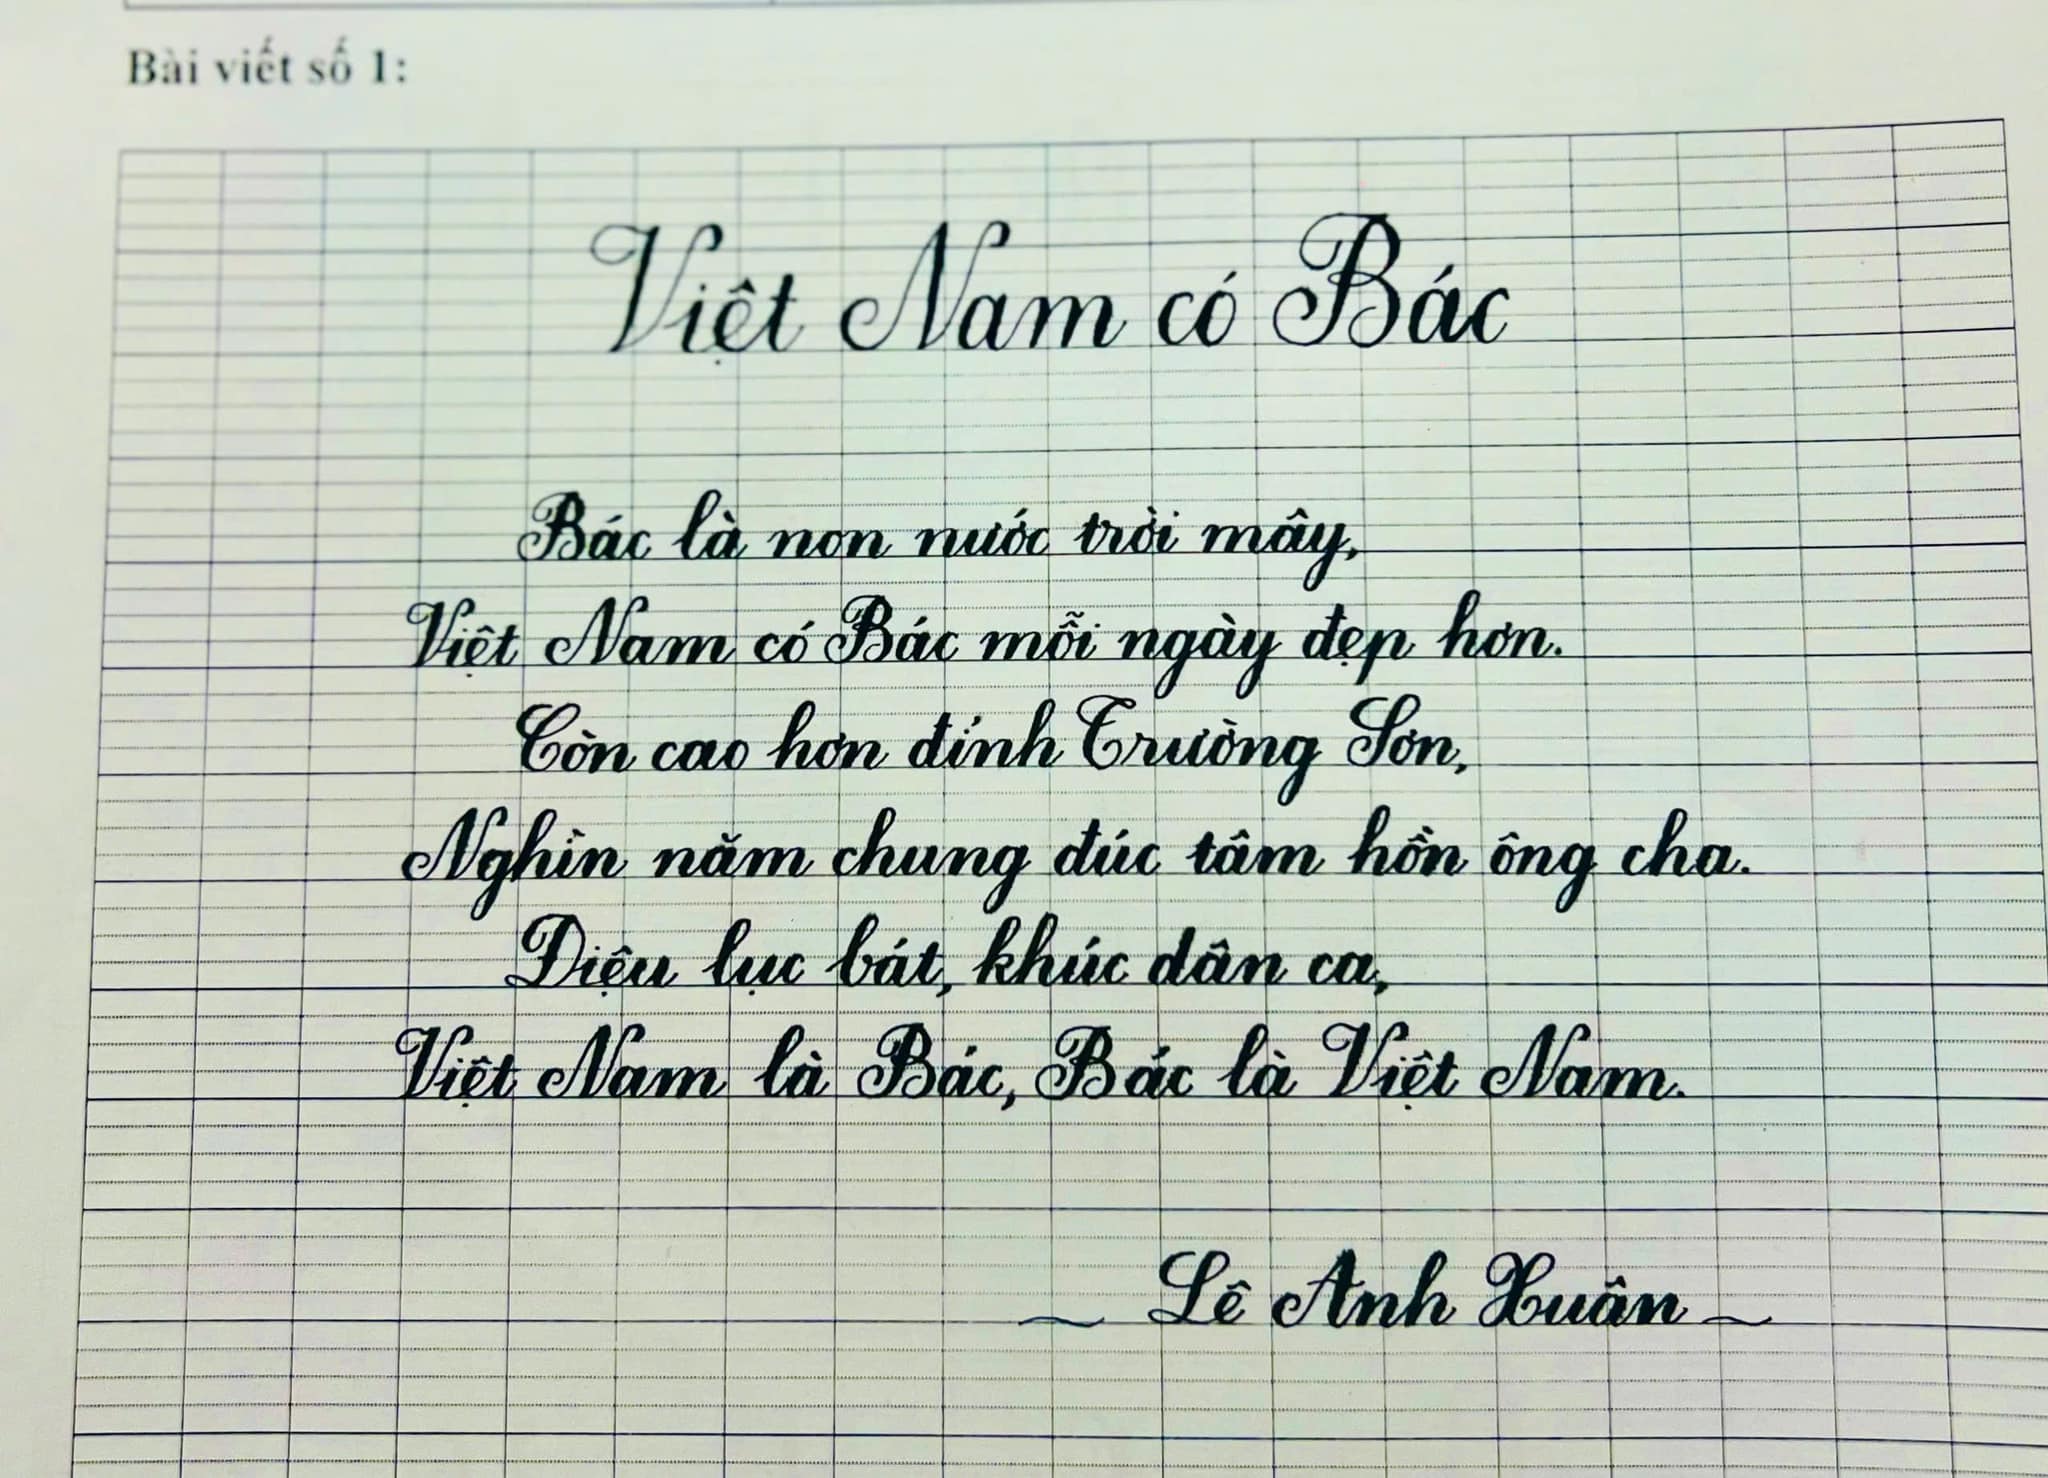 Bài viết số 1:
Việt Nam có Bác
Bác là non nước trời mây,
Việt Nam có Bác mỗi ngày đẹp hơn.
Còn cao hơn đỉnh Trường Sơn,
Nghìn năm chung đúc tâm hồn ông cha.
Diệu lục bát, khúc dân ca,
Việt Nam là Bác, Bác là Việt Nam.
~ Lê Anh Xuân ~